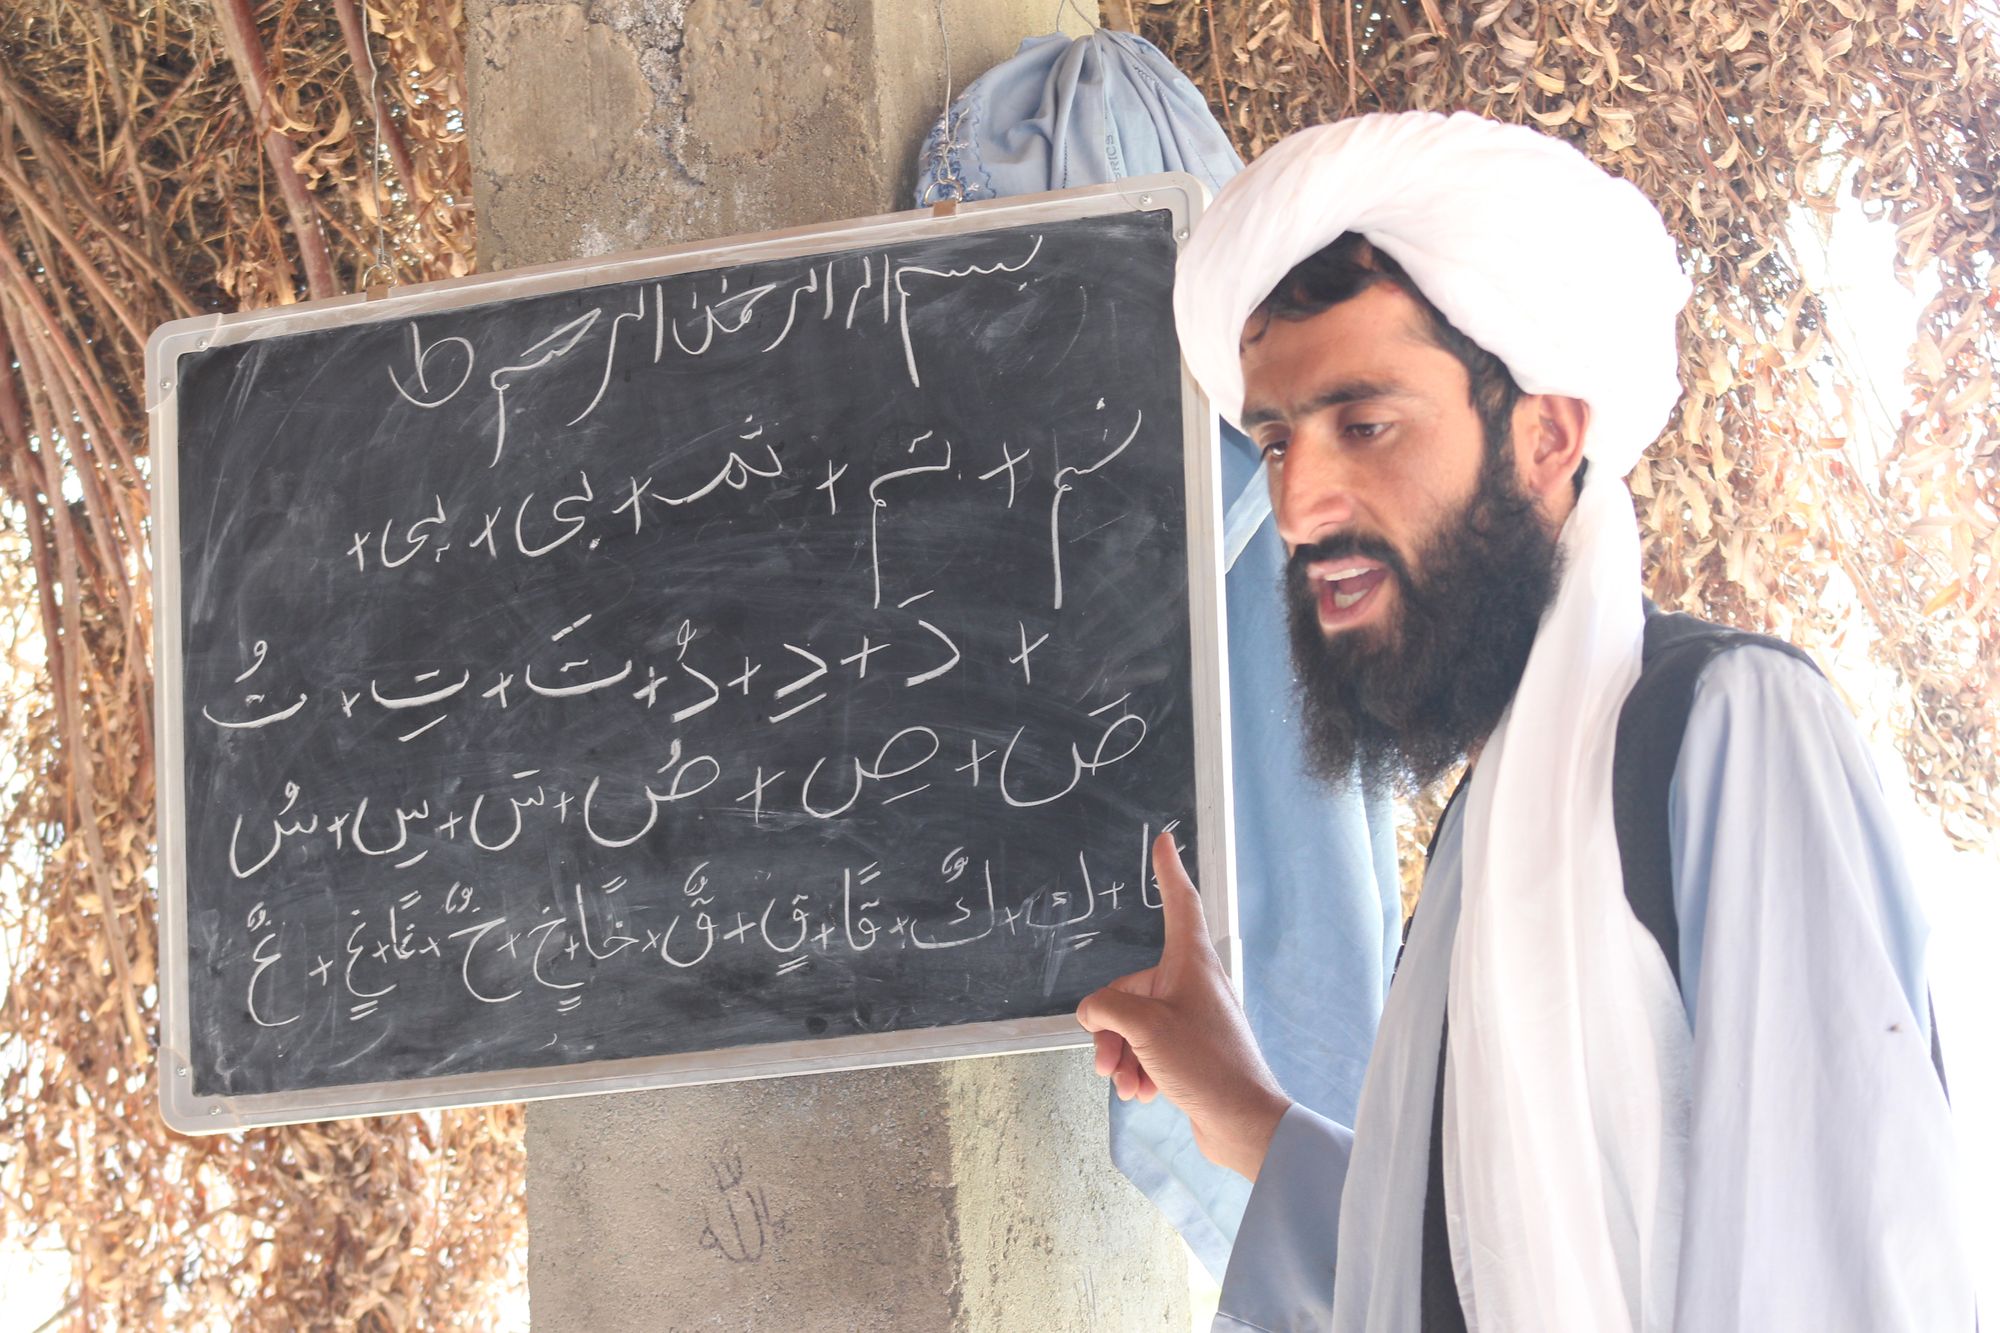 بسم الله الرحمٰن الرحیم ط
نم + تم + تمر + بی + بی +
+ دَ + دِ + دُ + تَ + تِ + تُ
صَ + صِ + صُ + سَ + سِ + سُ
كاً + كٍ + كٌ + قاً + قٍ + قٌ + خاً + خٍ + خٌ + غاً + غٍ + غٌ
الله